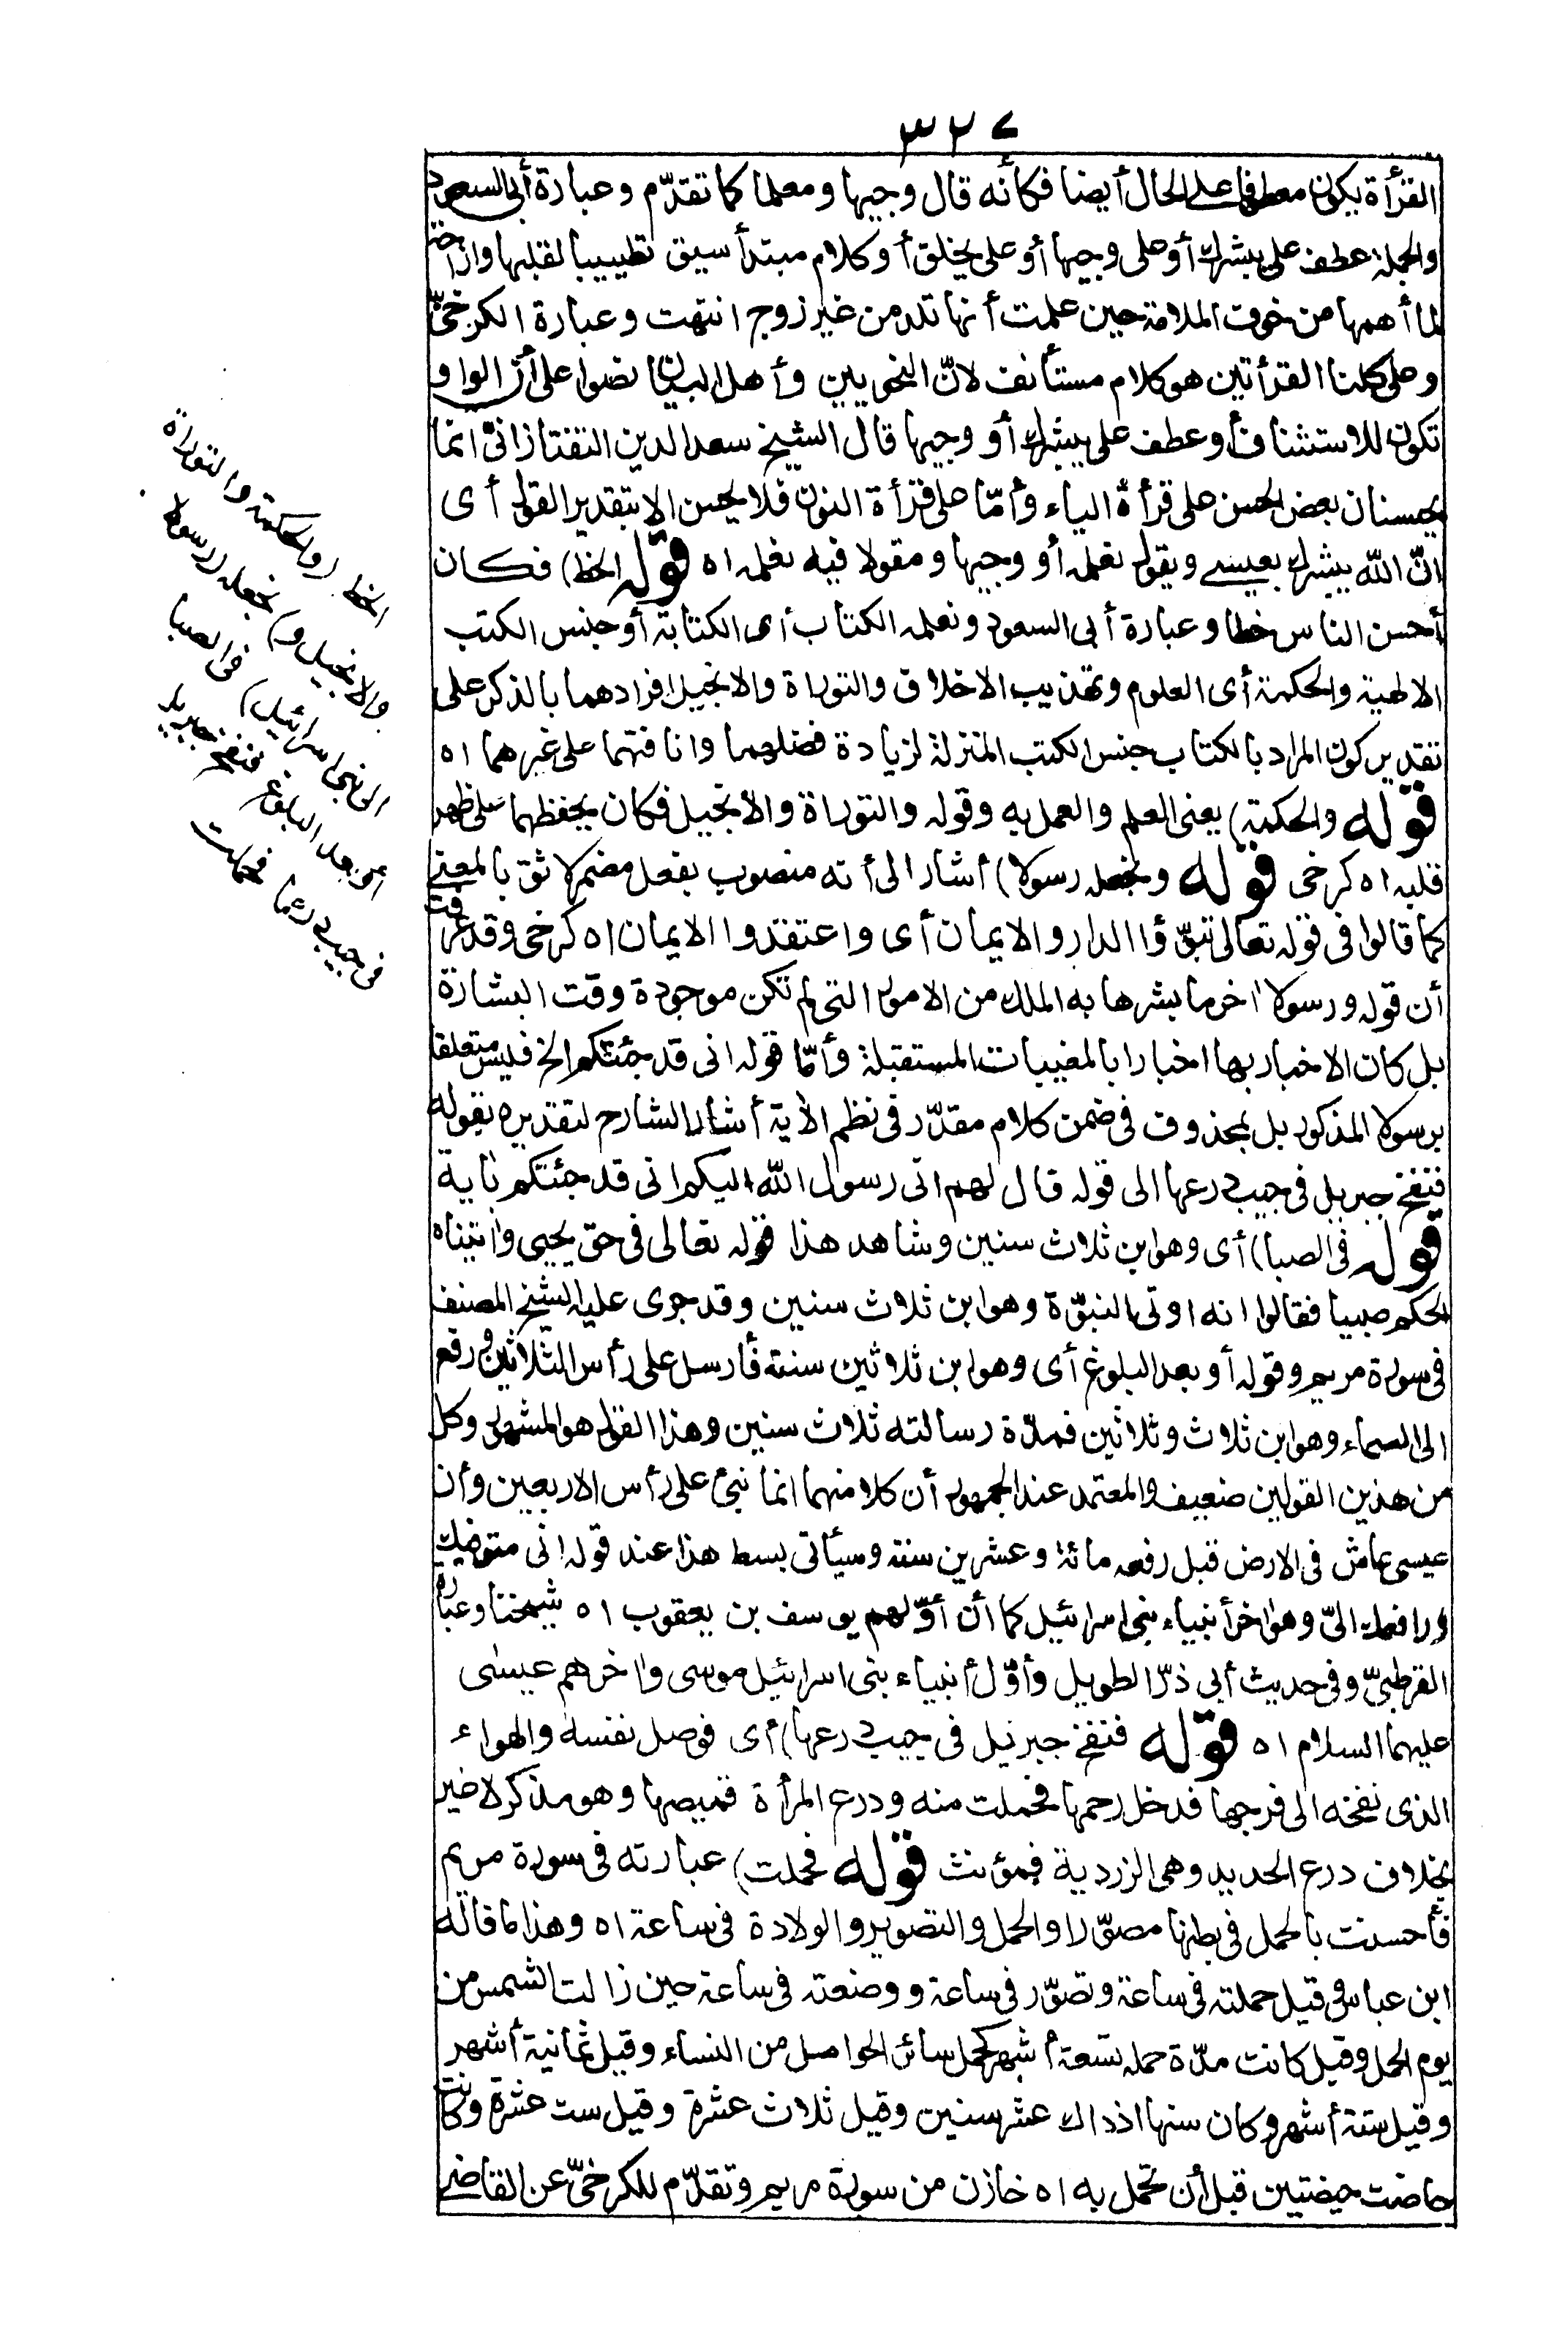 ٣٢٧
القرأة يكون معطوفا على الحال أيضا فكأنه قال وجيها ومعلما كما تقدّم وعبارة أبى السعود
والجملة عطف على يبشرك أو على وجيها أو على يخلق أو كلام مبتدأ سيق تطييبا لقلبها وازاحة
لما أهمها من خوف الملامة حين علمت أنها تلد من غير زوج انتهت وعبارة الكرخىّ
وعلى كلتا القرأتين هو كلام مستأنف لانّ النحويين وأهل البيان نصوا على أنّ الواو
تكون للاستئناف أو عطف على يبشرك أو وجيها قال الشيخ سعد الدين التفتازانىّ انما
يحسنان بعض الحسن على قرأة الياء وأمّا على قرأة النون فلا يحسن الا بتقدير القول أى
انّ اللّه يبشرك بعيسى ويقول نعلمه أو وجيها ومقولا فيه نعلمه اه قوله الخط) فكان
أحسن الناس خطا وعبارة أبى السعود ونعلمه الكتاب أى الكتابة أو جنس الكتب
الالهية والحكمة أى العلوم وتهذيب الاخلاق والتوراة والانجيل افرادهما بالذكر على
تقدير كون المراد بالكتاب جنس الكتب المنزلة لزيادة فضلهما وانافتهما على غيرهما اه
قوله والحكمة) يعنى العلم والعمل به وقوله والتوراة والانجيل فكان يحفظهما على ظهر
قلبه اه كرخى قوله ونجعله رسولا) أشار الى أنه منصوب بفعل مضمر لائق بالمعنى
كما قالوا فى قوله تعالى تبوّؤا الدار والايمان أى واعتقدوا الايمان اه كرخى وقد عرفت
أن قوله ورسولا اخر ما بشرها به الملك من الامور التى لم تكن موجودة وقت البشارة
بل كان الاخبار بها اخبارا بالمغيبات المستقبلة وأمّا قوله انى قد جئتكم الخ فليس متعلقا
برسولا المذكور بل بمحذوف فى ضمن كلام مقدّر فى نظم الاية أشار الشارح لتقديره بقوله
فنفخ جبريل فى جيب درعها الى قوله قال لهم انى رسول اللّه اليكم انى قد جئتكم بأية
قوله فى الصبا) أى وهو ابن ثلاث سنين وشاهد هذا قوله تعالى فى حق يحيى واتيناه
الحكم صبيا فقالوا انه اوتى النبوّة وهو ابن ثلاث سنين وقد جرى عليه الشيخ المصنف
فى سورة مريم وقوله أو بعد البلوغ أى وهو ابن ثلاثين سنة فأرسل على رأس الثلاثين ورفع
الى السماء وهو ابن ثلاث وثلاثين فمدّة رسالته ثلاث سنين وهذا القول هو المشهور وكل
من هذين القولين ضعيف والمعتمد عند الجمهور أن كلا منهما انما نبئ على رأس الاربعين وأن
عيسى عاش فى الارض قبل رفعه مائة وعشرين سنة وسيأتى بسط هذا عند قوله انى متوفيك
ورافعك الىّ وهو اخر أنبياء بنى اسرائيل كما أن أوّلهم يوسف بن يعقوب اه شيخنا وعبارة
القرطبىّ وفى حديث أبى ذرّ الطويل وأوّل أنبياء بنى اسرائيل موسى واخرهم عيسى
عليهما السلام اه قوله فنفخ جبرئيل فى جيب درعها) أى فوصل نفسه والهواء
الذى نفخه الى فرجها فدخل رحمها فحملت منه ودرع المرأة قميصها وهو مذكر لا غير
بخلاف درع الحديد وهى الزردية فمؤنث قوله فحملت) عبارته فى سورة مريم
فأحسنت بالحمل فى بطنها مصوّرا والحمل والتصوير والولادة فى ساعة اه وهذا ما قاله
ابن عباس وقيل حملته فى ساعة وتصوّر فى ساعة ووضعته فى ساعة حين زالت الشمس من
يوم الحمل وقيل كانت مدّة حمله تسعة أشهر كحمل سائر الحوامل من النساء وقيل ثمانية أشهر
وقيل ستة أشهر وكان سنها اذ ذاك عشر سنين وقيل ثلاث عشرة وقيل ست عشرة وكانت
حاضت حيضتين قبل أن تحمل به اه خازن من سورة مريم وتقدّم للكرخىّ عن القاضى
الخط (والحكمة والتوراة
والانجيل و) نجعله (رسولا
الى بنى اسرائيل) فى الصبا
أو بعد البلوغ فنفخ جبريل
فى جيب درعها فحملت